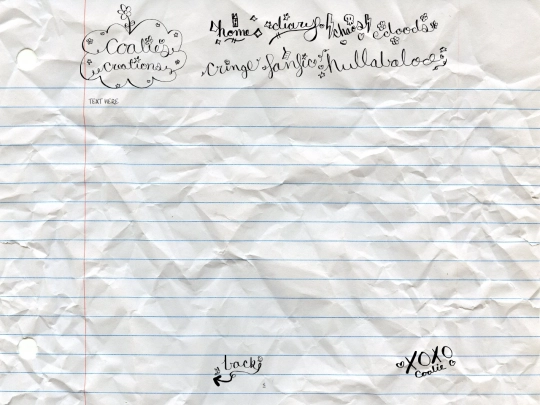 home diary chaos doods
Coalie's
creations
cringe fanfic hullabaloo
TEXT HERE
back
XOXO
Coalie